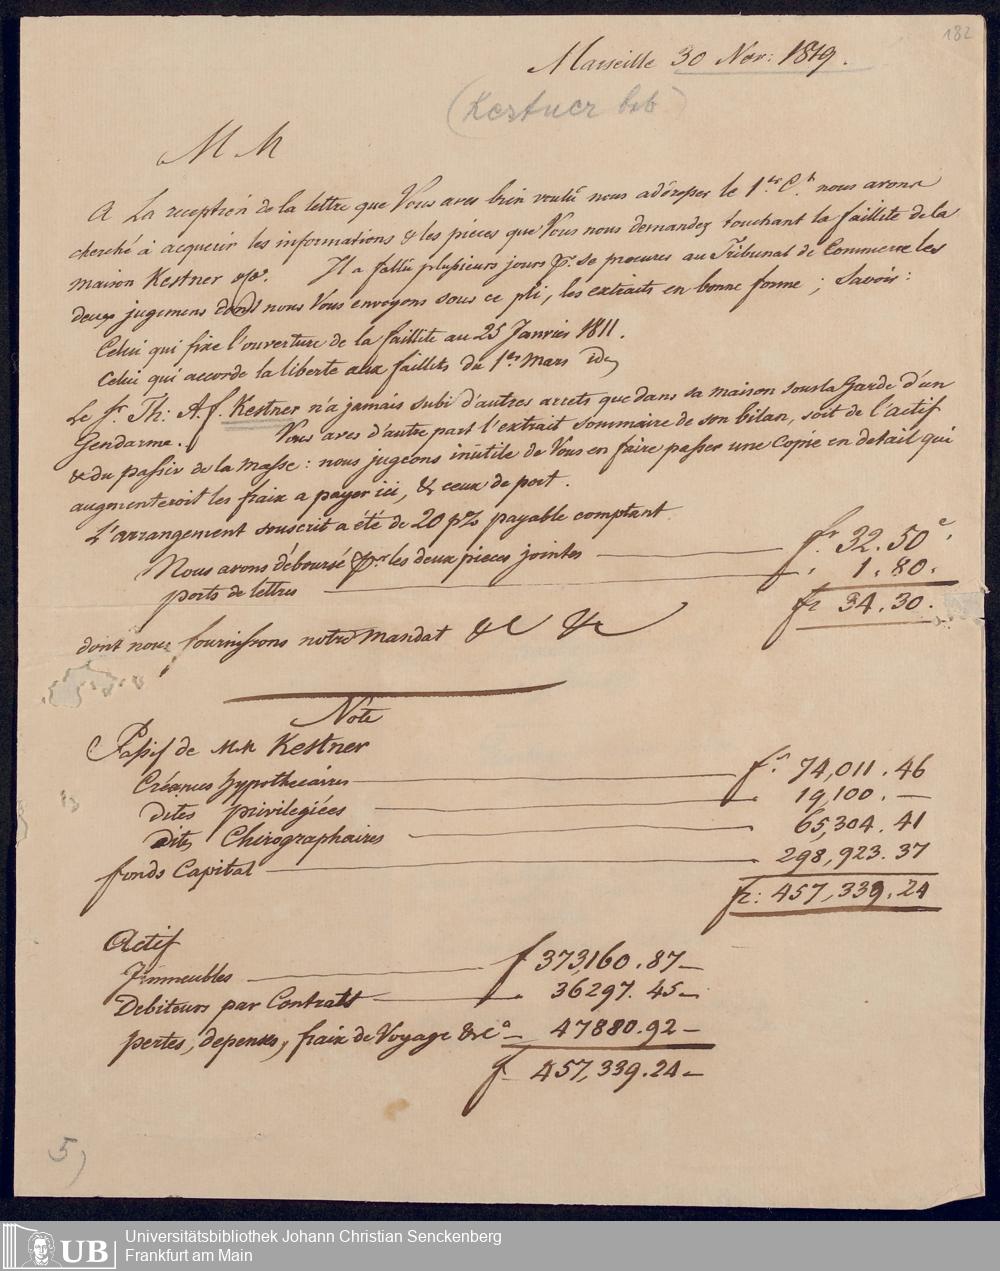 182
Marseille 30 Nov: 1819.
(Kestner betr)
M M
A la reception de la lettre que Vous avez bien voulû nous adresser le 1er Ct nous avons
cherché à acquerir les informations & les pieces que Vous nous demandez touchant la faillite de la
maison Kestner &Co. Il a fallû plusieurs jours pr. se procurer au Tribunal de Commerce les
deux jugemens dont nous Vous envoyons sous ce pli, les extraits en bonne forme ; Savoir :
Celui qui fixe l'ouverture de la faillite au 25 Janvier 1811.
Celui qui accorde la liberte aux faillits du 1er Mars id
Le Sr. Th: A. f. Kestner n'a jamais subi d'autres arrets que dans sa maison sous la Garde d'un
Gendarme. Vous aves d'autre part l'extrait sommaire de son bilan, soit de l'actif
& du passiv de la masse : nous jugeons inutile de Vous en faire passer une copie en detail qui
augmenteroit les fraix a payer ici, & ceux de port.
L'arrangement souscrit a été de 20 p% payable comptant
Nous avons déboursé pr les deux pieces jointes fr. 32.50c.
ports de lettres 1.80.
fr 34.30.
dont nous fournissons notre mandat & &
Note
Passif de MM Kestner
Créances hypothecaires fs. 74,011.46
dites privilegiées 19,100.—
Dites Chirographaires 65,304.41
fonds Capital 298,923.37
fr: 457,339.24
Actif
Immeubles f 373,160.87—
Debiteurs par Contrats 36297.45—
pertes, depenses, fraix de Voyage &ca 47880.92—
f 457,339.24—
5)
UB
Universitätsbibliothek Johann Christian Senckenberg
Frankfurt am Main